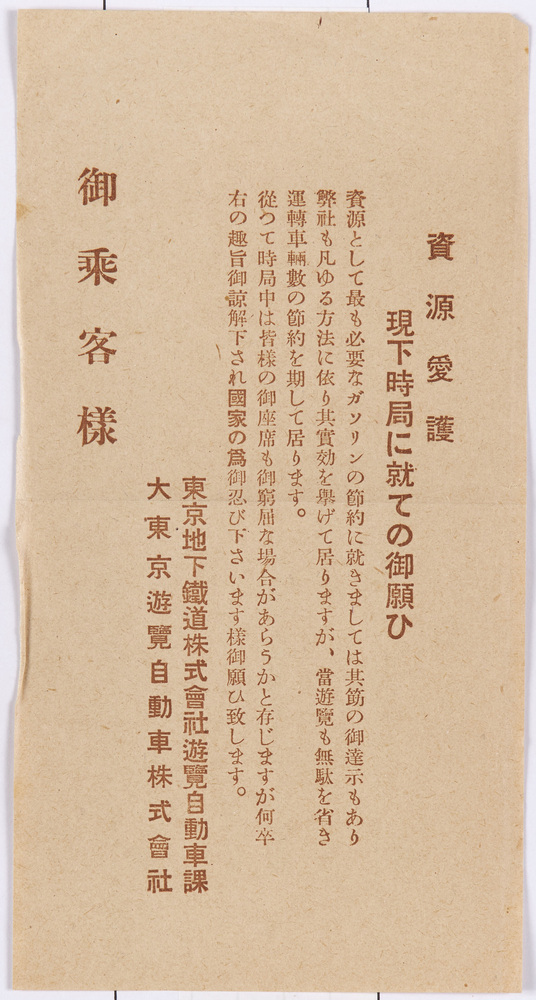 資源愛護
現下時局に就ての御願ひ
資源として最も必要なガソリンの節約に就きましては其筋の御達示もあり
弊社も凡ゆる方法に依り其實効を擧げて居りますが、當遊覽も無駄を省き
運轉車輛數の節約を期して居ります。
從つて時局中は皆樣の御座席も御窮屈な場合があらうかと存じますが何卒
右の趣旨御諒解下され國家の爲御忍び下さいます樣御願ひ致します。
東京地下鐵道株式會社遊覽自動車課
大東京遊覽自動車株式會社
御乘客樣